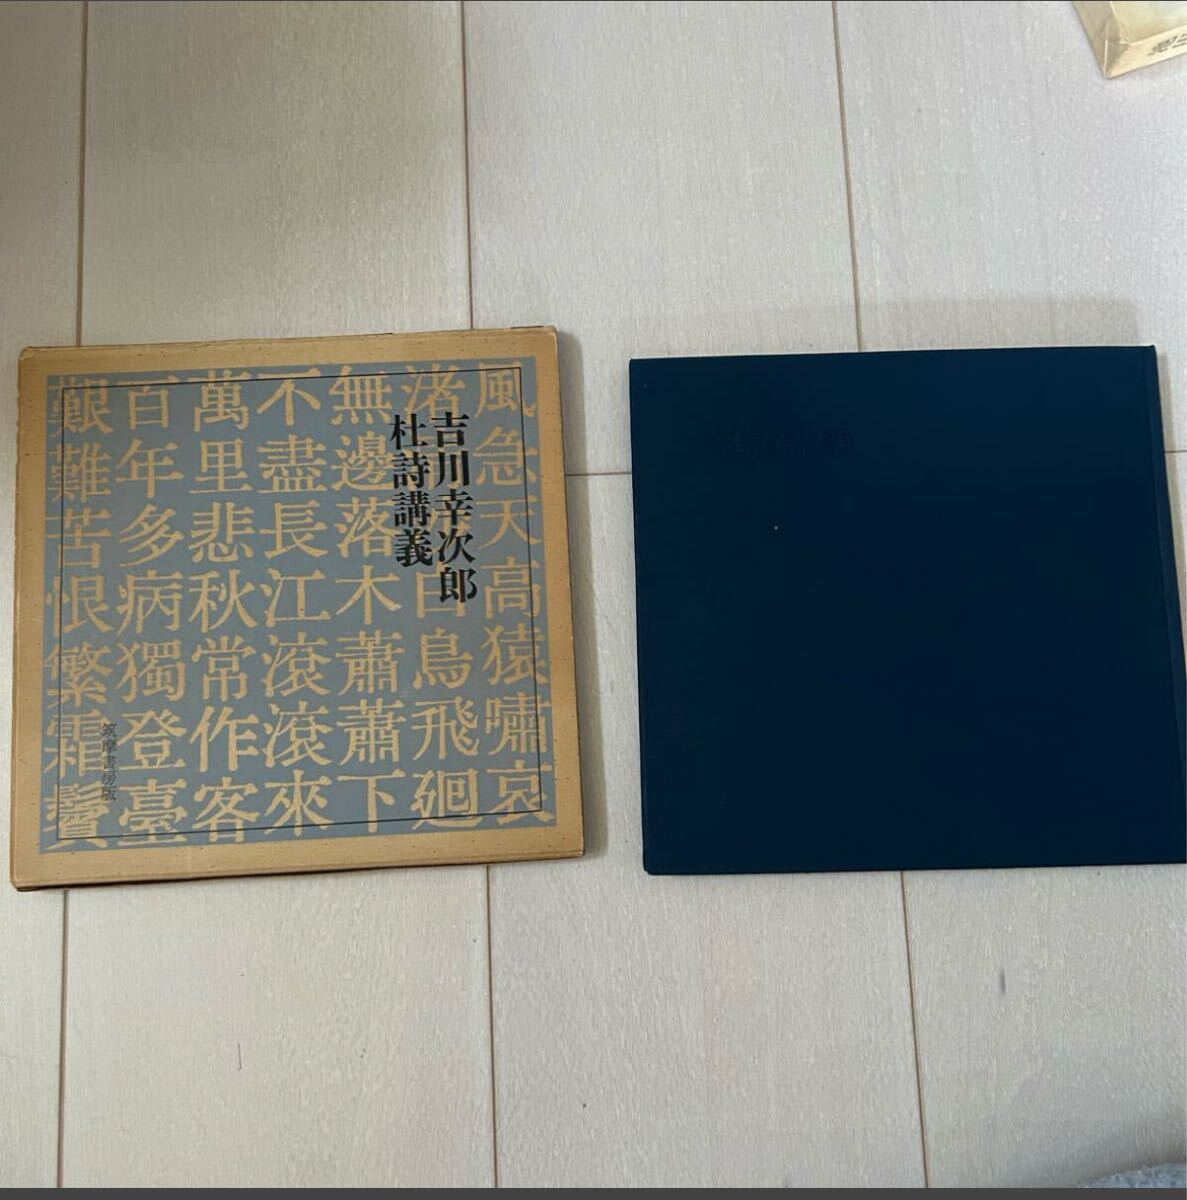 吉川幸次郎
杜詩講義
風急天高猿嘯哀
渚清沙白鳥飛廻
無邊落木蕭蕭下
不盡長江滾滾來
萬里悲秋常作客
百年多病獨登臺
艱難苦恨繁霜鬢
筑摩書房版
杜詩講義